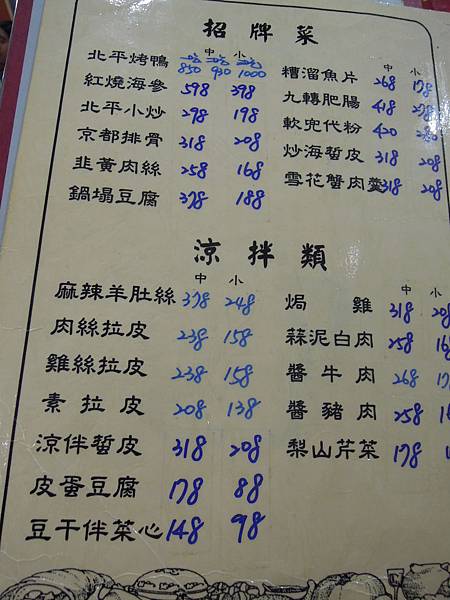 招牌菜
中 小
北平烤鴨 850 930 1000
紅燒海參 598 398
北平小炒 298 198
京都排骨 318 208
韭黃肉絲 258 168
鍋塌豆腐 378 188
中 小
糟溜魚片 268 178
九轉肥腸 418
軟兜代粉 420
炒海蜇皮 318 208
雪花蟹肉羹 318 208
涼拌類
中 小
麻辣羊肚絲 378 248
肉絲拉皮 238 158
雞絲拉皮 238 158
素拉皮 208 138
涼伴蜇皮 318 208
皮蛋豆腐 178 88
豆干伴菜心 148 98
中 小
焗雞 318
蒜泥白肉 258
醬牛肉 268
醬豬肉 258
梨山芹菜 178